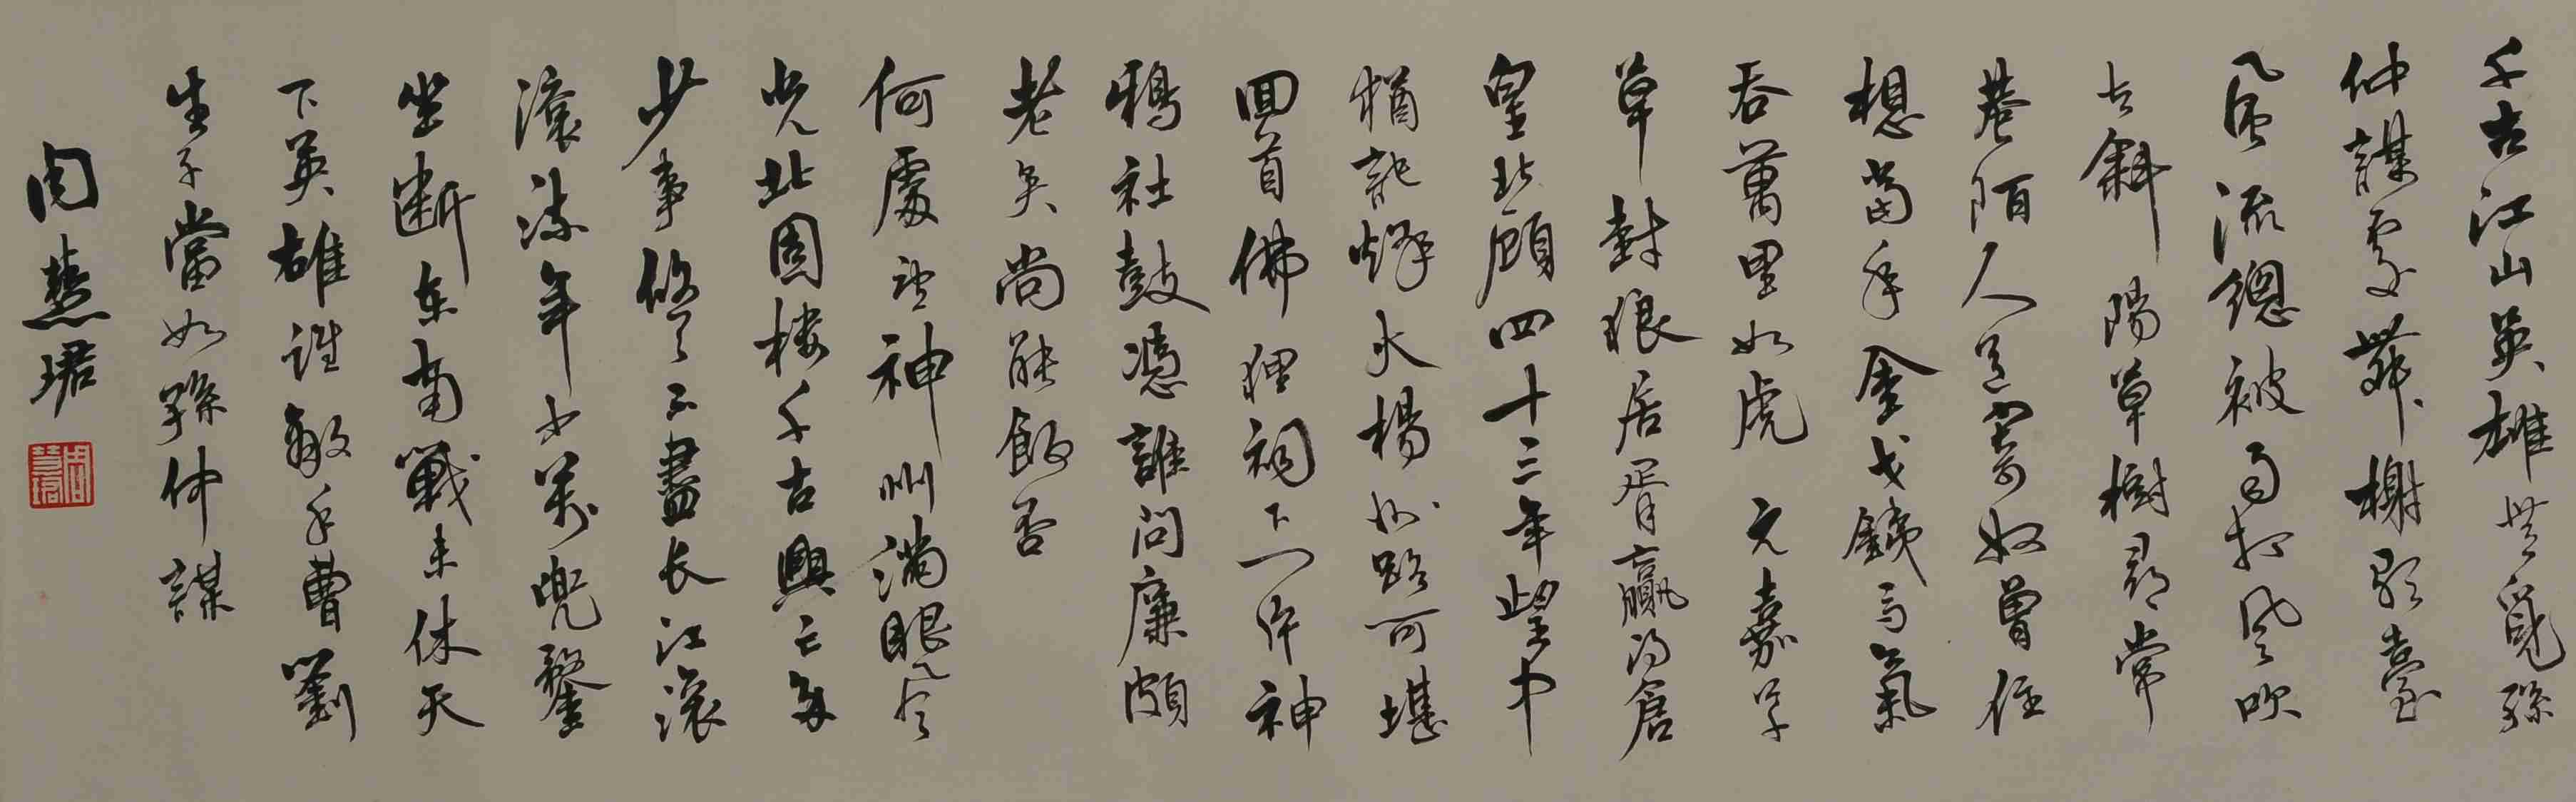 千古江山英雄無覓孫
仲謀處舞榭歌臺
風流總被雨打風吹
去斜陽草樹尋常
巷陌人道寄奴曾住
想當年金戈鐵馬氣
吞萬里如虎 元嘉草
草封狼居胥贏得倉
皇北顧四十三年望中
猶記烽火楊州路可堪
回首佛狸祠下一片神
鴉社鼓憑誰問廉頗
老矣尚能飯否
何處望神州滿眼風
光北固楼千古興亡多
少事悠々不盡长江滾
滾流年少萬兜鍪
坐断东南戰未休天
下英雄誰敵手曹劉
生子當如孫仲謀
周慧珺
周慧珺